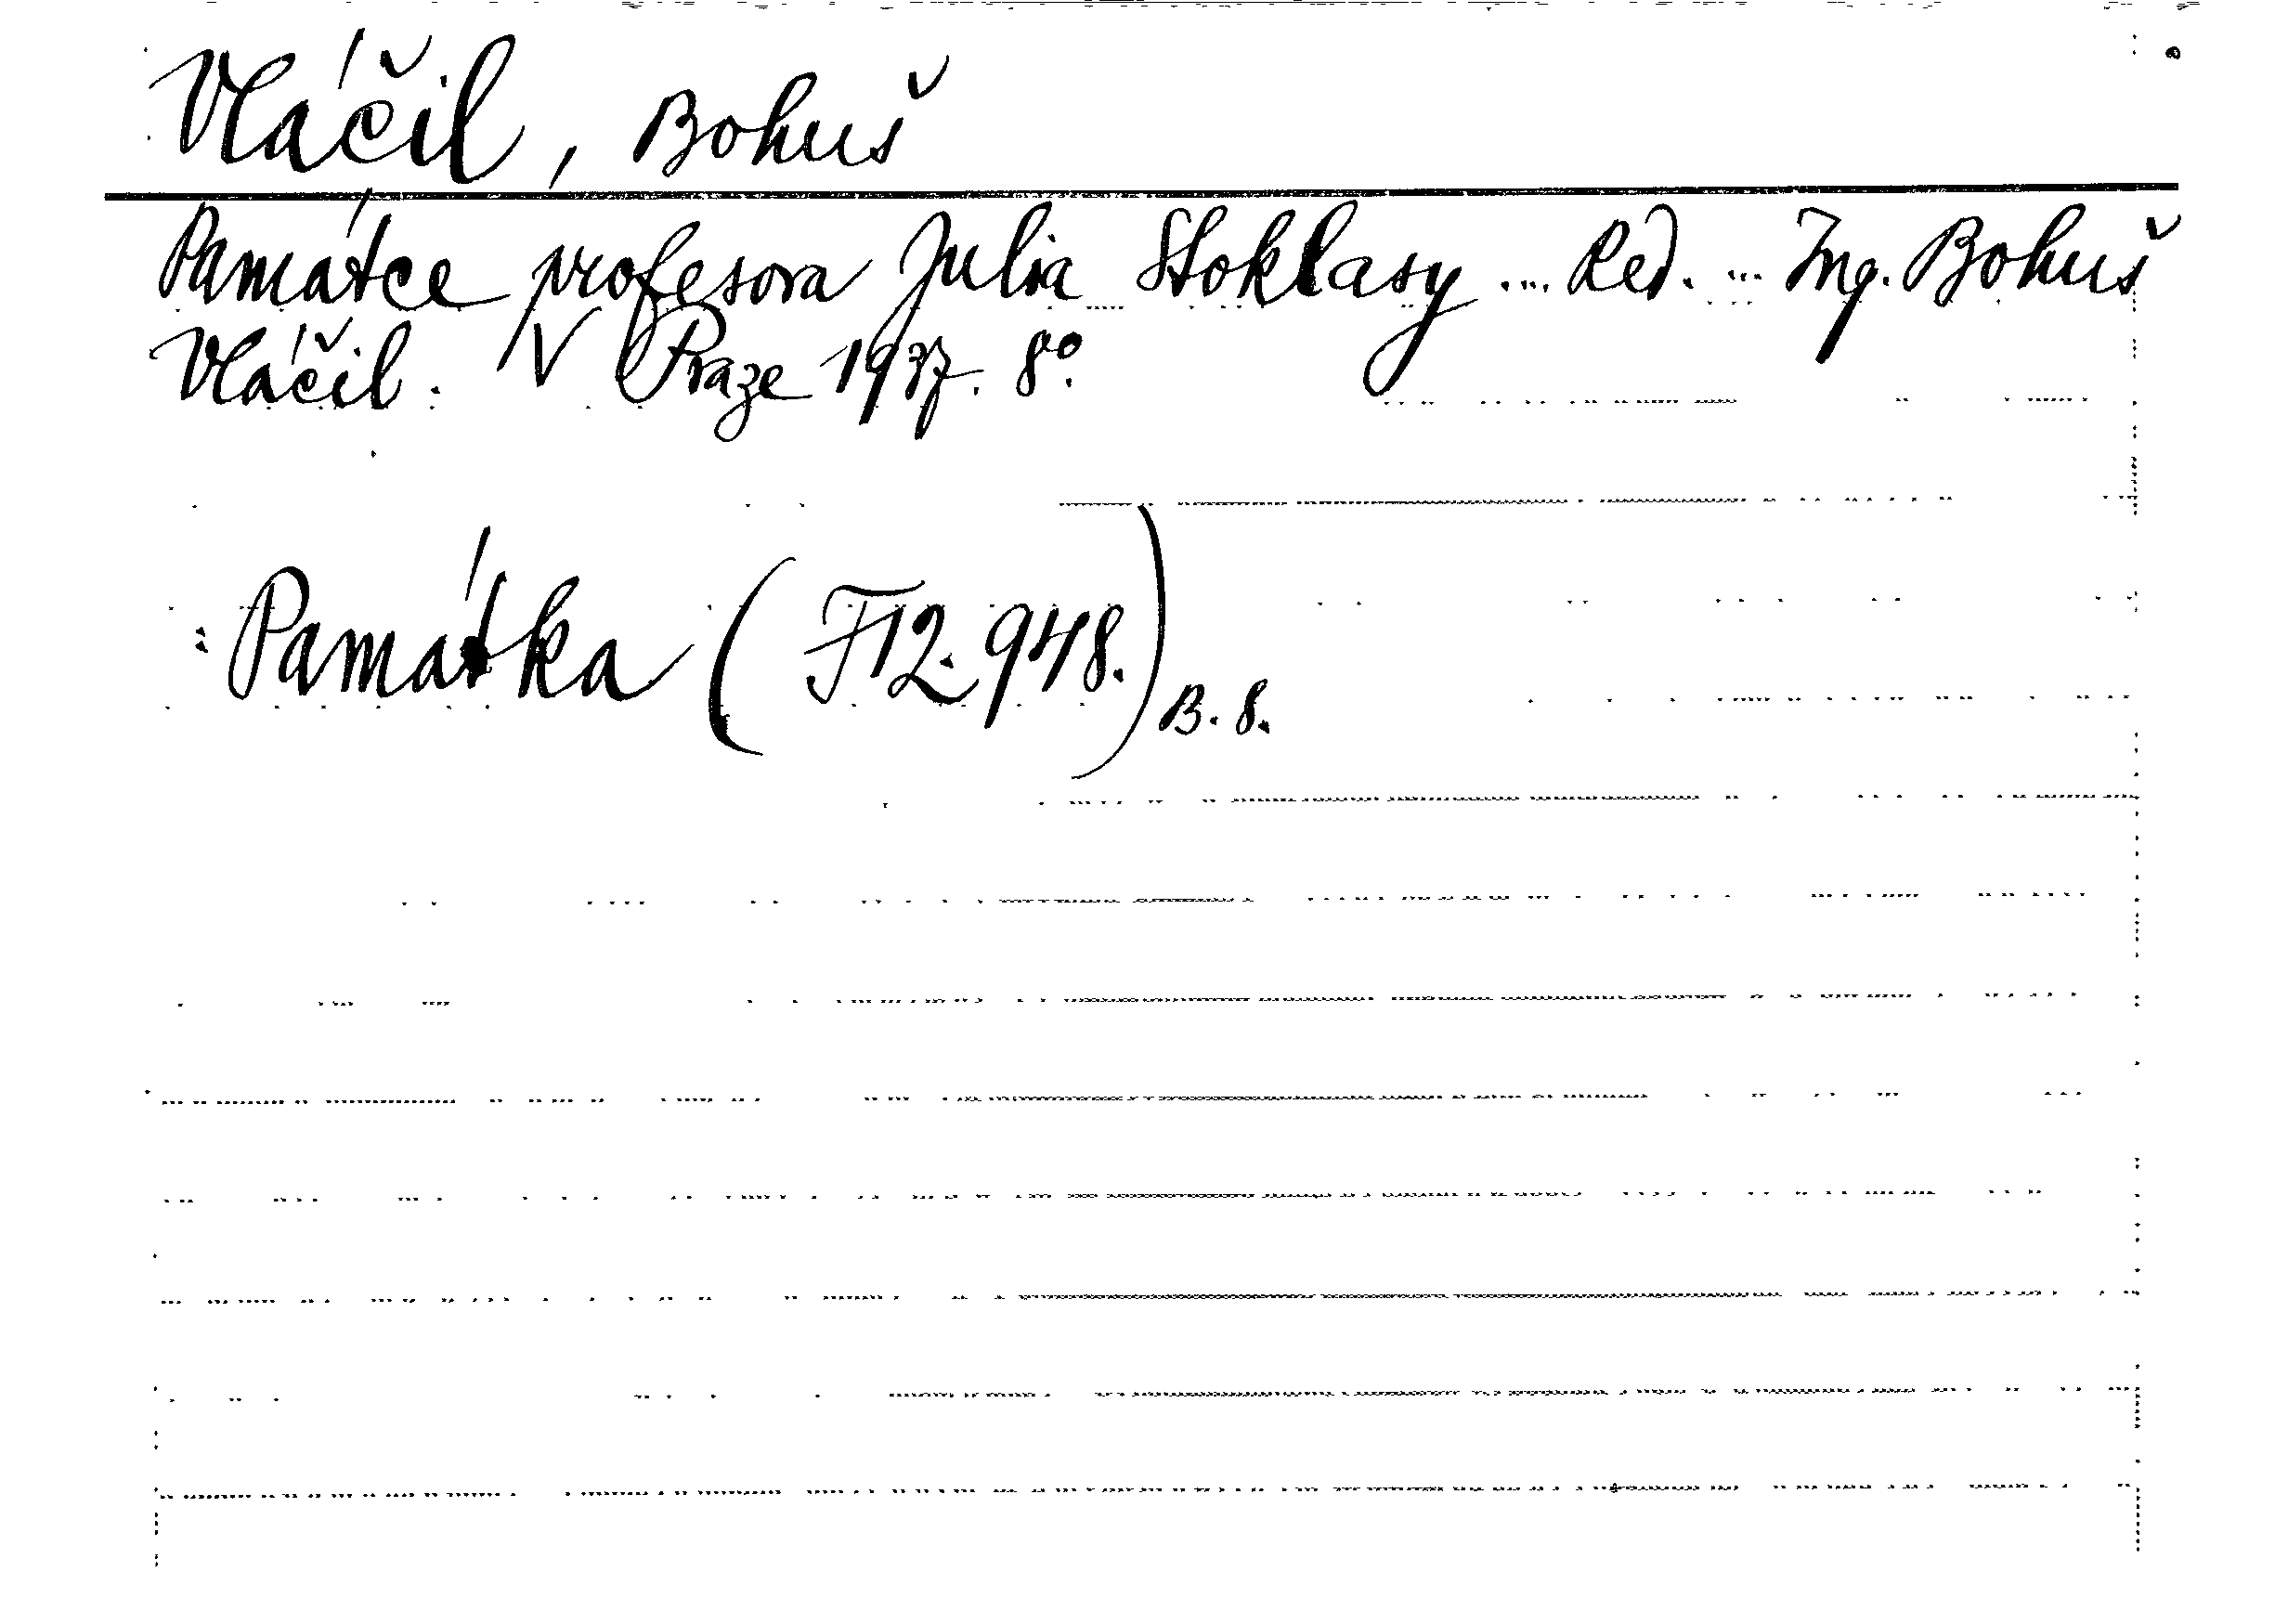 Vláčil, Bohuš
Památce profesora Julia Stoklasy ... Red. ... Ing. Bohuš
Vláčil. V Praze 1937. 8°.
: Památka (F12.948.) B. S.